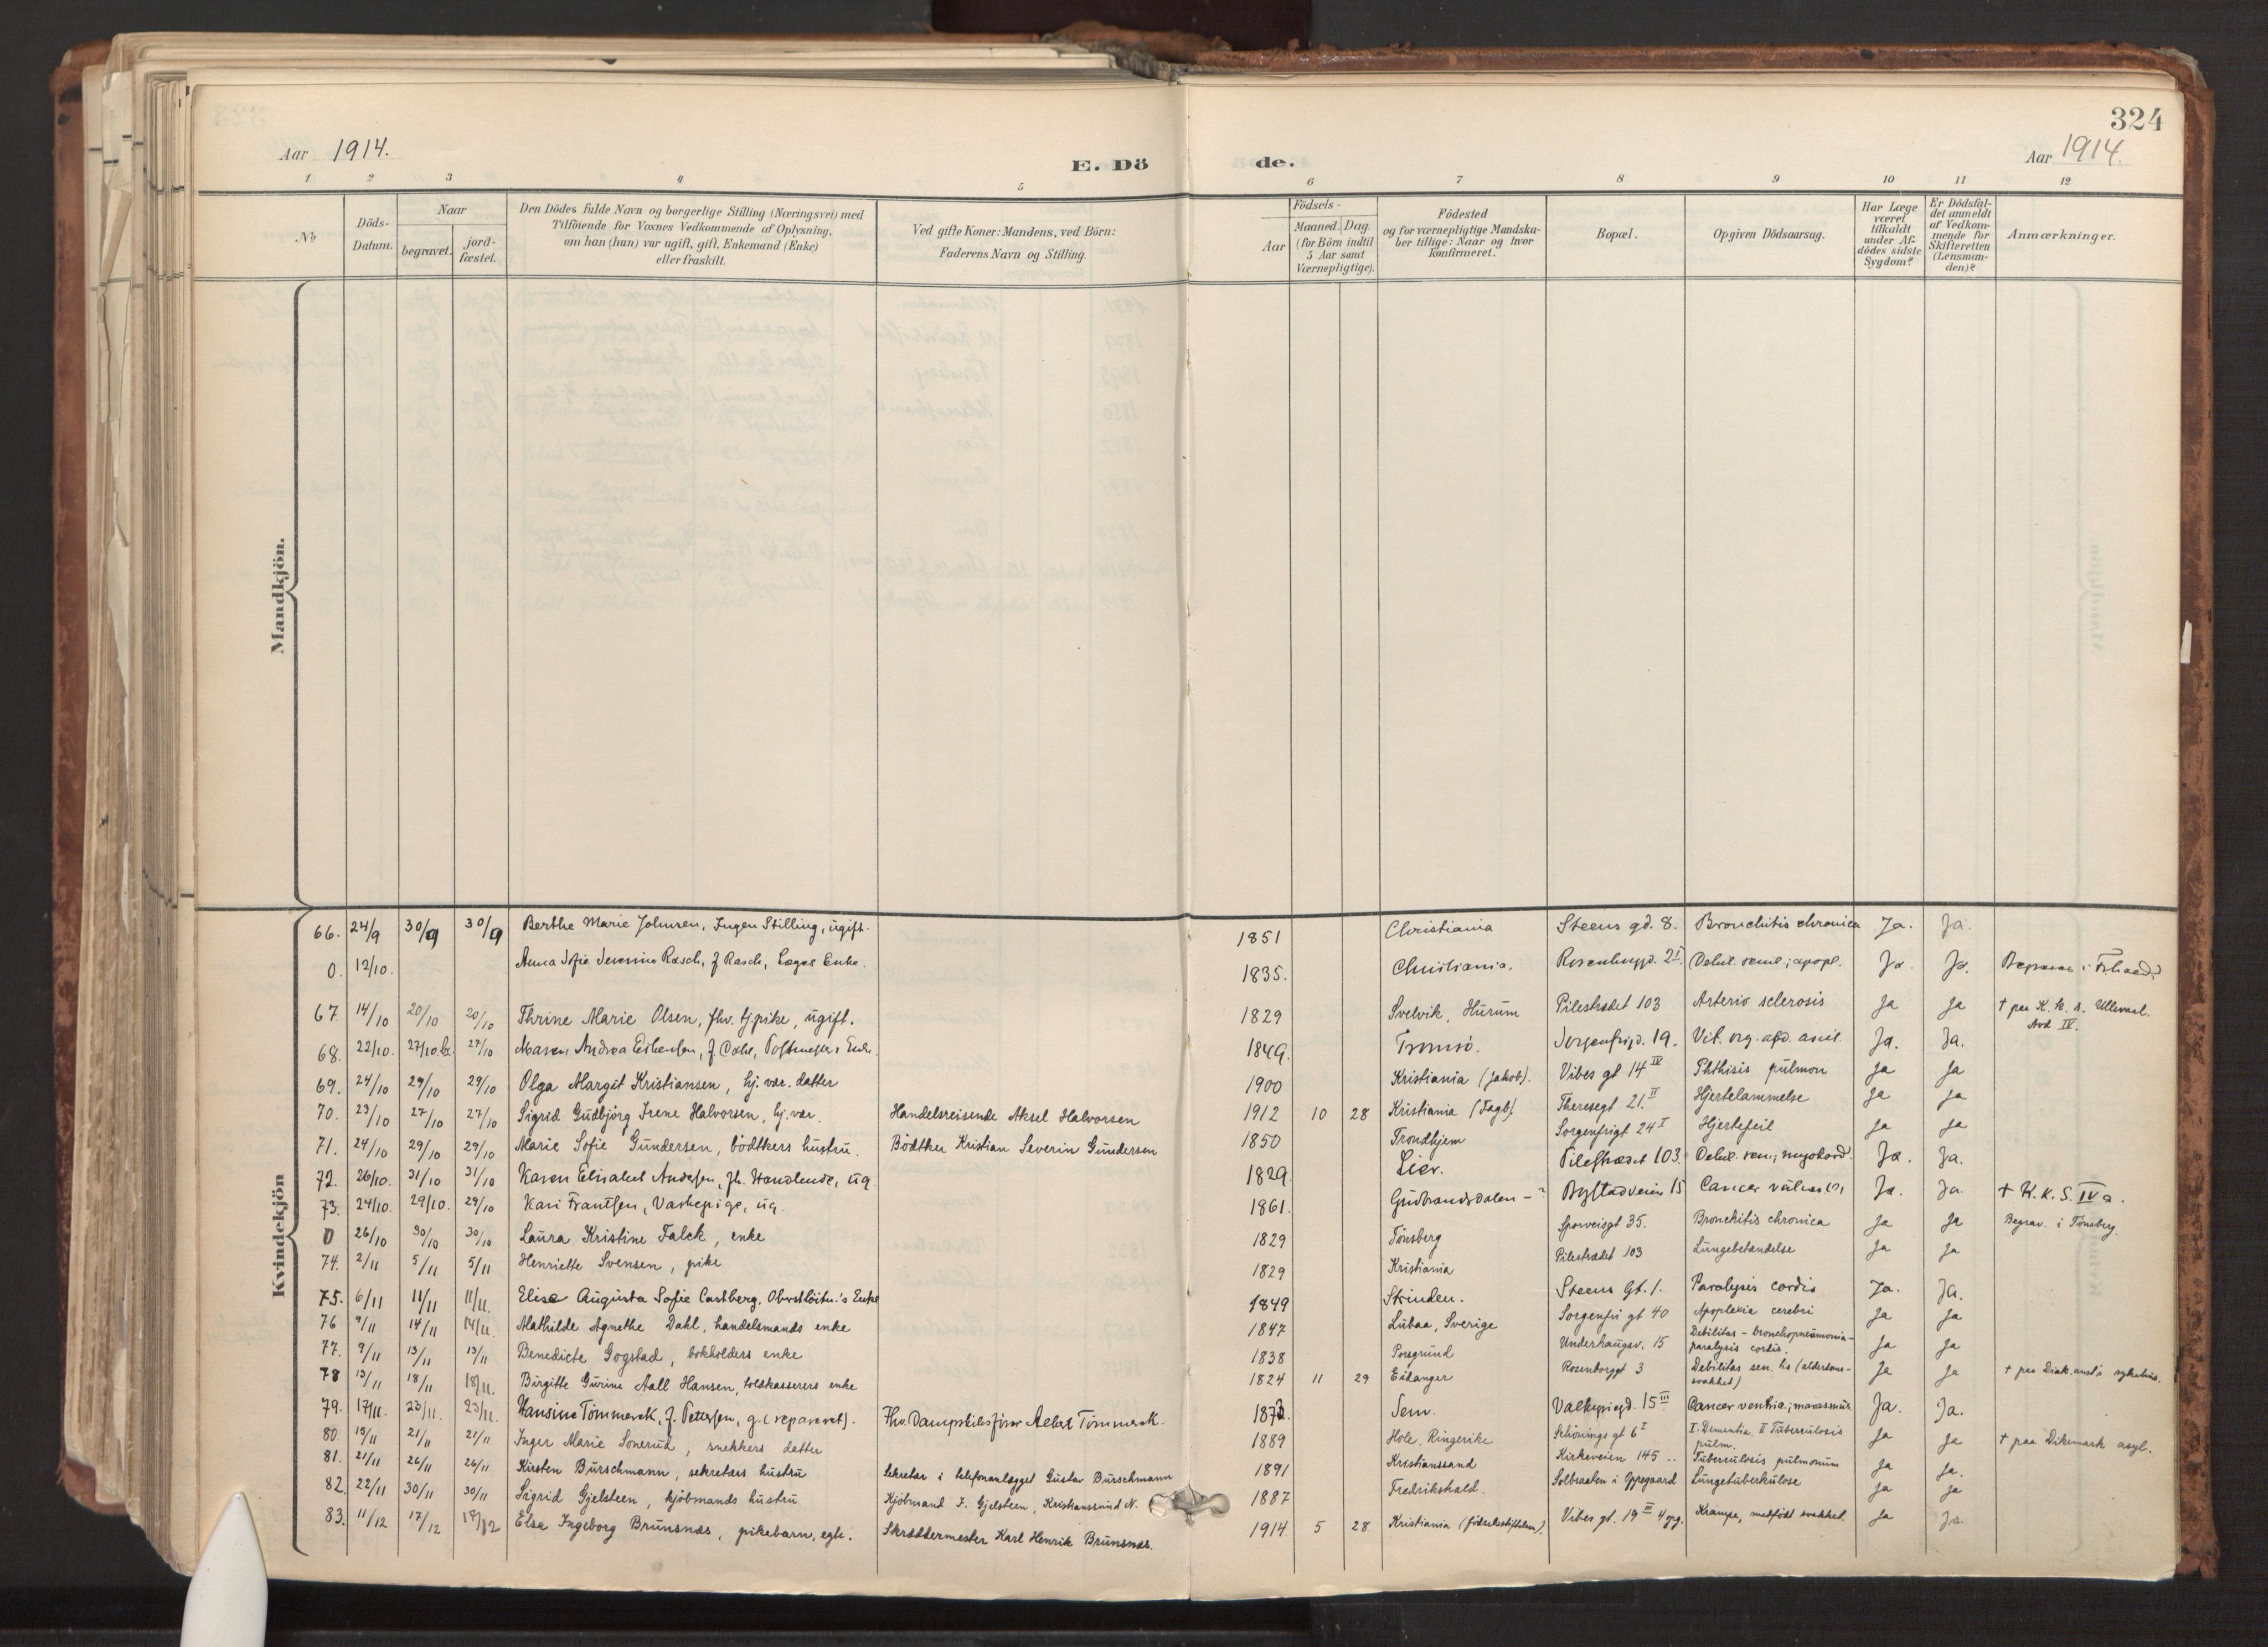 324
Aar 1914. E. Dö de. Aar 1914.
1 2 3 4 5 6 7 8 9 10 11 12
No
Döds-Datum.
Naar
begravet.
jord-fæstet.
Den Dödes fulde Navn og borgerlige Stilling (Næringsvei) med
Tilföiende for Voxnes Vedkommende af Oplysning,
om han (hun) var ugift, gift, Enkemand (Enke)
eller fraskilt.
Ved gifte Koner: Mandens, ved Börn:
Faderens Navn og Stilling.
Födsels-
Aar
Maaned. Dag.
(for Börn indtil
5 Aar samt
Værnepligtige).
Födested
og for værnepligtige Mandska-
ber tillige: Naar og hvor
konfirmeret.
Bopæl.
Opgiven Dödsaarsag.
Har Læge
været
tilkaldt
under Af-
dödes sidste
Sygdom?
Er Dödsfal-
det anmeldt
af Vedkom-
mende for
Skifteretten
(Lensman-
den)?
Anmærkninger.
Mandkjön.
Kvindekjön
66. 24/9 30/9 30/9 Berthe Marie Johnsen, Ingen Stilling, ugift. 1851 Christiania Steens gd. 8. Bronchitis chronica Ja. Ja.
0. 12/10. Anna Sofie Severine Rasch, f. Rasch, Læges Enke. 1835. Christiania. Ja. Ja.
67. 14/10 20/10 20/10 Thrine Marie Olsen, fhv. tj.pike, ugift. 1829 Svelvik, Hurum Pilestrædet 103 Arterio sclerosis Ja Ja † paa K. k. s. Ullevaal. Avd IV.
68. 22/10. 27/10. 27/10 Maren Andrea 1849. Tromsö. Sorgenfrigd. 19. Vit. org. Ja. Ja.
69. 24/10 29/10 29/10 Olga Margit Kristiansen, hj.vær. datter 1900 Kristiania (Jakob). Vibes gt 14 IV Phthisis pulmon Ja Ja
70. 23/10 27/10 27/10 Sigrid Gudbjörg Irene Halvorsen, hj.vær. Handelsreisende Aksel Halvorsen 1912 10 28 Kristiania (Fagb). Theresegt 21. II Hjertelammelse Ja Ja
71. 24/10 29/10 29/10 Marie Sofie Gundersen, bödtkers hustru. Bödtker Kristian Severin Gundersen 1850 Trondhjem Sorgenfrigt 24 I Hjertefeil Ja Ja
72. 26/10. 31/10 31/10 Karen Elisabet Andersen, fh. Handlende, ug. 1829. Lier. Pilestrædet 103. Debil. sen.; myokard. Ja. Ja.
73. 24/10. 29/10. 29/10 Kari Frantsen, Vaskepige, ug. 1861. Gudbrandsdalen - ? Bogstadveien 15 Cancer Ja. Ja. † K. K. S. IV a.
0 26/10 30/10 30/10 Laura Kristine Falck, enke 1829 Tönsberg Sporveisgt 35. Bronchitis chronica Ja Ja Begrav. i Tönsberg.
74. 2/11 5/11 5/11 Henriette Svensen, pike 1829 Kristiania Pilestrædet 103 Lungebetændelse Ja Ja
75. 6/11 11/11 11/11. Elise Augusta Sofie Castberg, Oberstlöitn.'s Enke 1849 Skinden. Steens Gt. 1. Paralysis cordis Ja. Ja.
76 9/11 14/11 14/11. Mathilde Agnethe Dahl, handelsmands enke 1847 Lubaa, Sverige Sorgenfri gt 40 Apoplexia cerebri Ja Ja
77. 9/11 13/11 13/11 Benedicte Gogstad, bokholders enke 1838 Porsgrund Underhaugsv. 15 Debilitas - bronchopneumonia - paralysis cordis. Ja Ja
78 13/11 18/11 18/11. Birgitte Gurine Aall Hansen, toldkasserers enke 1824 11 29 Eidanger Rosenborggt 3 Debilitas sen. lis (alderdoms-svakhet) Ja Ja † paa Diak.anst's sykehus.
79. 17/11. 23/11. 23/11. Hansine Tömmerck, f. Pettersen, g. (separeret). Fhv. Dampskibsförer Albert Tömmerck. 187 Sem. Valkyriegd. 15 III Cancer ventric.; marasmus Ja. Ja.
80. 15/11 21/11 21/11 Inger Marie Sonerud, snekkers datter 1889 Hole, Ringerike Schönings gt 6 I I. Dementia. II Tuberculosis pulm. Ja Ja † paa Dikemark asyl.
81. 21/11 26/11 26/11 Kirsten Burschmann, sekretærs hustru Sekretær i telefonanlægget Gustav Burschmann 1891 Kristianssand Kirkeveien 145 .. Tuberculosis pulmonum Ja Ja.
82. 22/11 30/11 30/11 Sigrid Gjelsteen, kjöbmands hustru Kjöbmand F. Gjelsteen, Kristianssund N. 1887 Fredrikshald. Solbraaten i Oppegaard Lungetuberkulose Ja Ja
83. 11/12 17/12 17/12 Else Ingeborg Brunsnæs, pikebarn, egte. Skræddermester Karl Henrik Brunsnæs. 1914 5 28 Kristiania (födselsstiftelsen). Vibes gt. 19 III 4 opg. Krampe, medfödt svakhet. Ja Ja